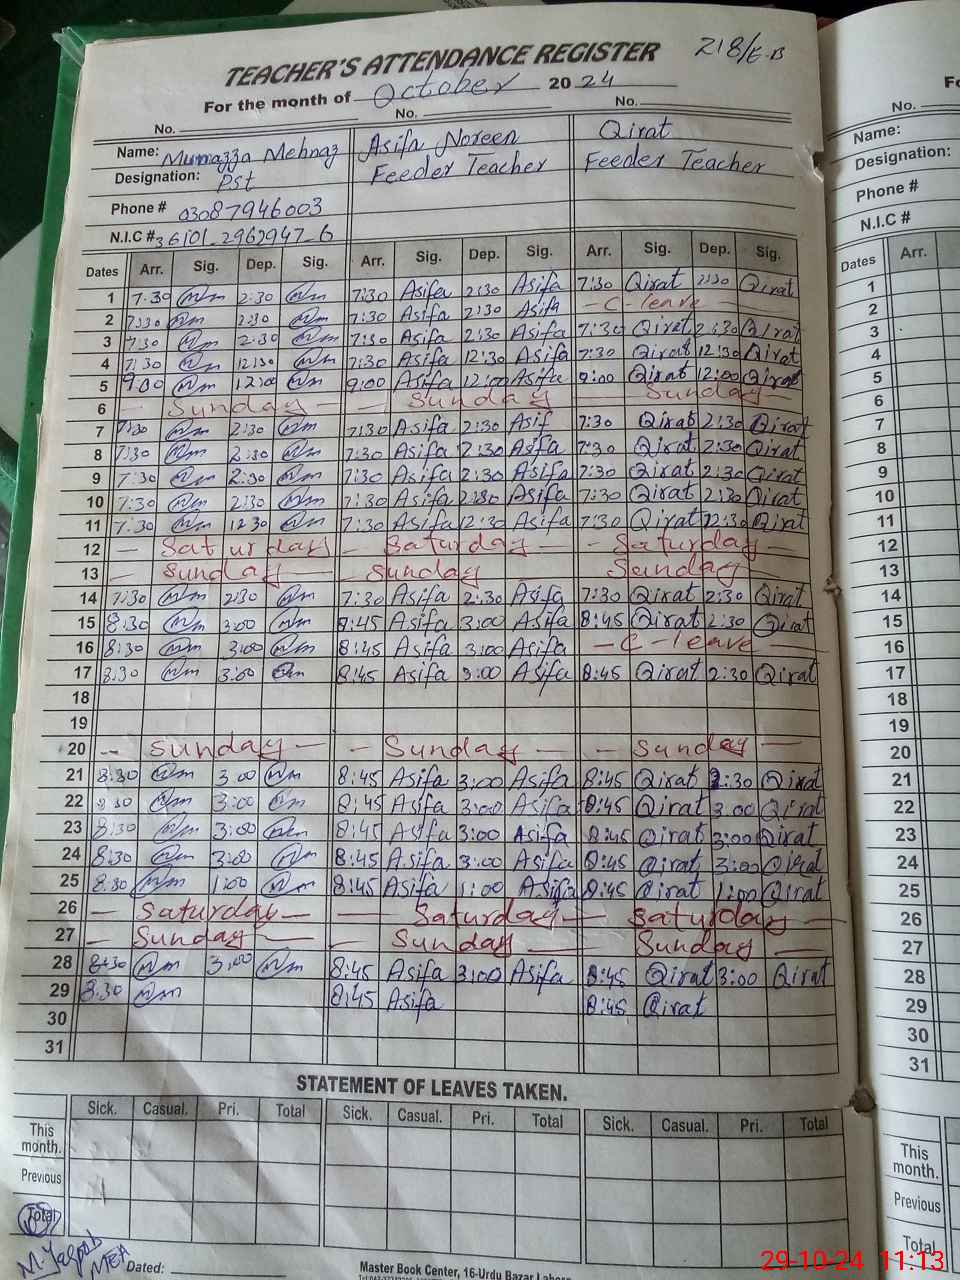 TEACHER'S ATTENDANCE REGISTER 218/E-B
For the month of October 2024
No. No. No.
Name: Mumazza Mehnaz Asifa Noreen Qirat
Designation: Pst Feeder Teacher Feeder Teacher
Phone # 03087946003
N.I.C # 36101_2962947_6
Dates Arr. Sig. Dep. Sig. Arr. Sig. Dep. Sig. Arr. Sig. Dep. Sig.
1 7:30 2:30 7:30 Asifa 2:30 Asifa 7:30 Qirat 2:30 Qirat
2 7:30 2:30 7:30 Asifa 2:30 Asifa - C-leave -
3 7:30 2:30 7:30 Asifa 2:30 Asifa 7:30 Qirat 2:30 Qirat
4 7:30 12:30 7:30 Asifa 12:30 Asifa 7:30 Qirat 12:30 Qirat
5 9:00 12:00 9:00 Asifa 12:00 Asifa 9:00 Qirat 12:00 Qirat
6 - Sunday - - Sunday - Sunday -
7 7:30 2:30 7:30 Asifa 2:30 Asif 7:30 Qirat 2:30 Qirat
8 7:30 2:30 7:30 Asifa 2:30 Asifa 7:30 Qirat 2:30 Qirat
9 7:30 2:30 7:30 Asifa 2:30 Asifa 7:30 Qirat 2:30 Qirat
10 7:30 2:30 7:30 Asifa 2:30 Asifa 7:30 Qirat 2:30 Qirat
11 7:30 12:30 7:30 Asifa 12:30 Asifa 7:30 Qirat 12:30 Qirat
12 - Saturday - Saturday - - Saturday -
13 - Sunday - - Sunday Sunday -
14 7:30 2:30 7:30 Asifa 2:30 Asifa 7:30 Qirat 2:30 Qirat
15 8:30 3:00 8:45 Asifa 3:00 Asifa 8:45 Qirat 2:30 Qirat
16 8:30 3:00 8:45 Asifa 3:00 Asifa - C-leave -
17 8:30 3:00 8:45 Asifa 3:00 Asifa 8:45 Qirat 2:30 Qirat
18
19
20 - Sunday - - Sunday - - Sunday -
21 8:30 3:00 8:45 Asifa 3:00 Asifa 8:45 Qirat 2:30 Qirat
22 8:30 3:00 8:45 Asifa 3:00 Asifa 8:45 Qirat 3:00 Qirat
23 8:30 3:00 8:45 Asifa 3:00 Asifa 8:45 Qirat 3:00 Qirat
24 8:30 3:00 8:45 Asifa 3:00 Asifa 8:45 Qirat 3:00 Qirat
25 8:30 1:00 8:45 Asifa 1:00 Asifa 8:45 Qirat 1:00 Qirat
26 - Saturday - - Saturday - Saturday -
27 - Sunday - - Sunday - Sunday -
28 8:30 3:00 8:45 Asifa 3:00 Asifa 8:45 Qirat 3:00 Qirat
29 8:30 8:45 Asifa 8:45 Qirat
30
31
STATEMENT OF LEAVES TAKEN.
Sick. Casual. Pri. Total Sick. Casual. Pri. Total Sick. Casual. Pri. Total
This month.
Previous
Total
M. Yaqoob
MEA
Dated:
Master Book Center, 16-Urdu Bazar Lahore
No.
Name:
Designation:
Phone #
N.I.C #
Dates Arr.
1
2
3
4
5
6
7
8
9
10
11
12
13
14
15
16
17
18
19
20
21
22
23
24
25
26
27
28
29
30
31
This month.
Previous
Total
29-10-24 11:13